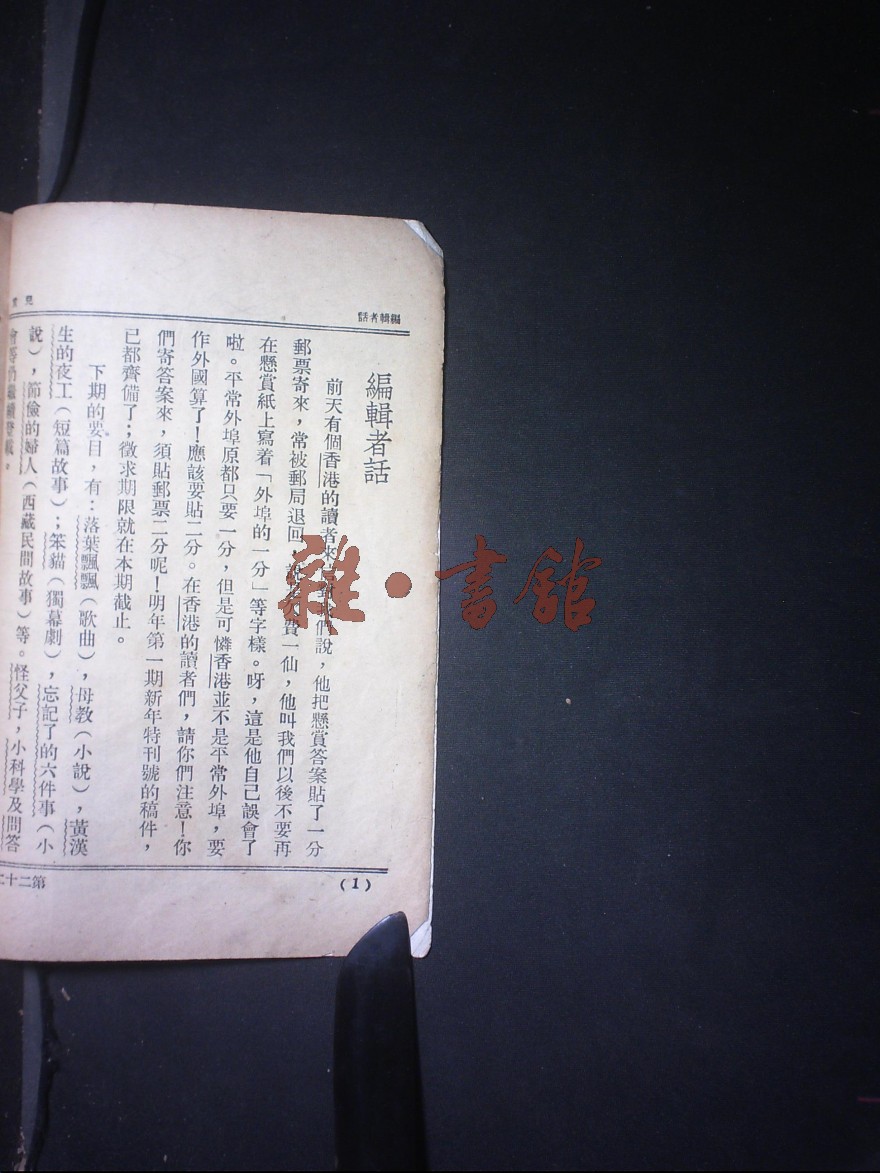 編輯者話
兒
編輯者話
前天有個香港的讀者來們說，他把懸賞答案貼了一分
郵票寄來，常被郵局退回，費一仙，他叫我們以後不要再
在懸賞紙上寫着「外埠的一分」等字樣。呀，這是他自己誤會了
啦。平常外埠原都只要一分，但是可憐香港並不是平常外埠，要
作外國算了！應該要貼二分。在香港的讀者們，請你們注意！你
們寄答案來，須貼郵票二分呢！明年第一期新年特刊號的稿件，
已都齊備了；徵求期限就在本期截止。
下期的要目，有：落葉飄飄（歌曲），母教（小說），黃漢
生的夜工（短篇故事）；笨貓（獨幕劇），忘記了的六件事（小
說），節儉的婦人（西藏民間故事）等。怪父子，小科學及問答
會等仍繼續登載。
(1)
第二十
雜·書館